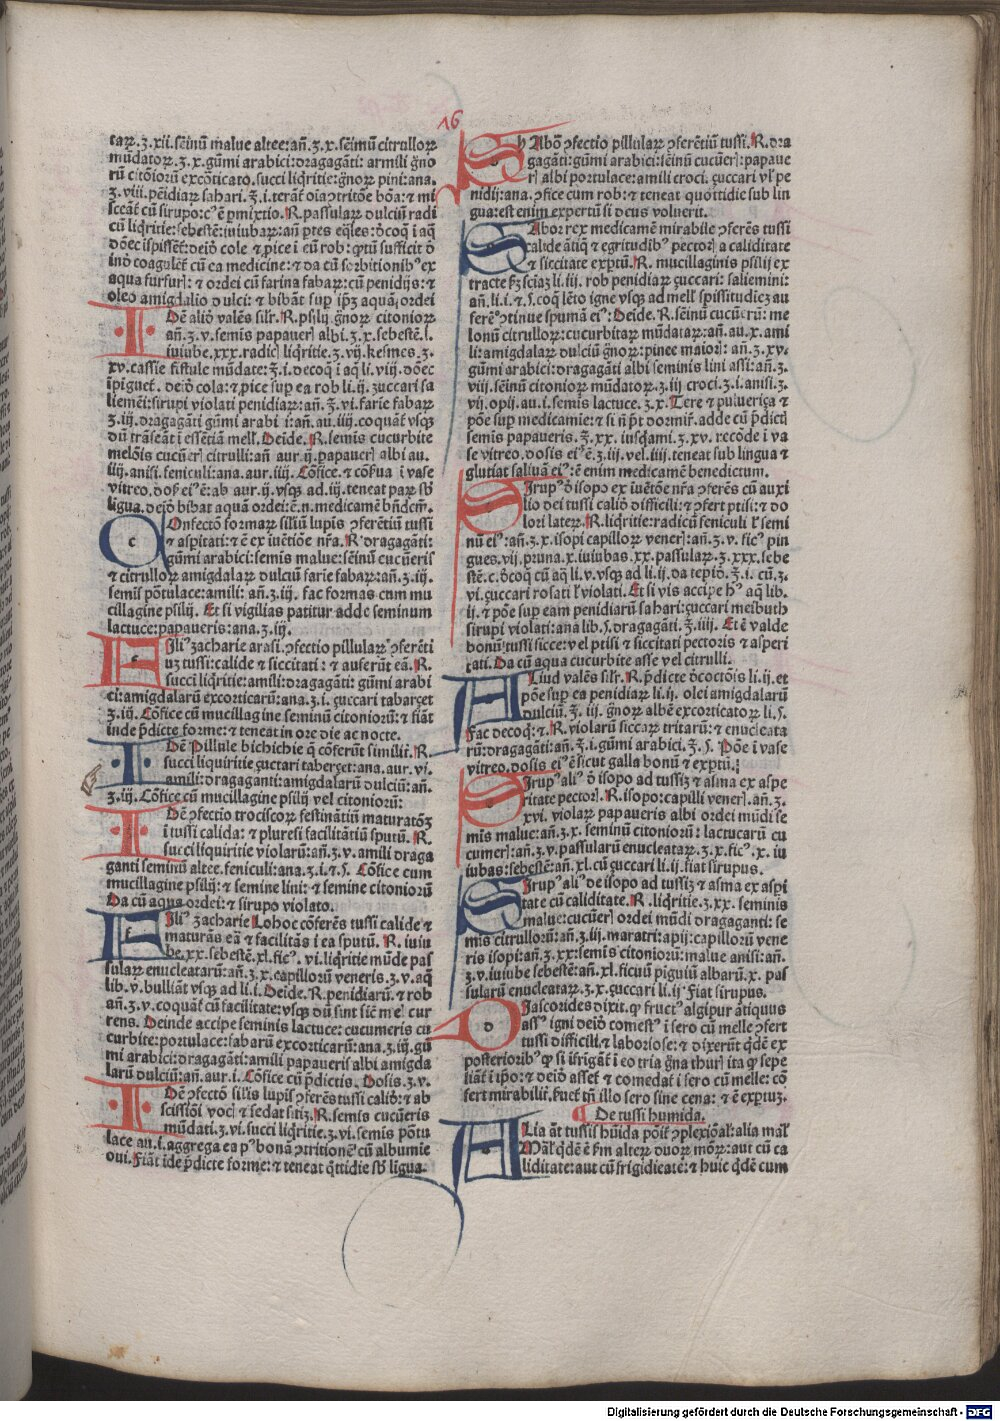 16
caꝝ.ʒ.xii.ſeīnū malue altee:an̄.ʒ.x.ſeīmū citrulloꝝ
mūdatoꝝ.ʒ.x.gūmi arabici:dragagāti: armili g̈no
rū citōioꝝ excōticato.ſucci liq̈ritie:g̈noꝝ pini:ana.
ʒ.viii.pēidiaꝝ ſahari.℥.i.terāt̄ oīa ꝯtritōe bōa:⁊ mi
ſceāt̄ cū ſirupo:cꝰ ē ꝑmixtio. R.paſſulaꝝ dulciū radi
cū liq̈ritie:ſebeſtē:iuiubaꝝ:an̄ ꝑtes eq̄les:ō coq̄ i aq̄
dōec iſpiſſet̄:deīō cole ⁊ ꝓice i eū rob: ꝙtū ſufficit ō
inō coagulet̄ cū ea medicine:⁊ da cū ſorbitionibꝰ ex
aqua furfurꝝ:⁊ ordei cū farina fabaꝝ:cū penidijs:⁊
oleo amigdalio dulci:⁊ bibāt ſuꝑ ip̄ʒ aquā ordei
IDē aliō valēs ſilꝝ.R.pſilij g̈noꝝ citonioꝝ
an̄.ʒ.v.ſemis papauerꝭ albi.ʒ.x.ſebeſtē.ſ.
iuiube.xxx.radicꝭ liq̈ritie.ʒ.vij.keſmes.ʒ.
xv.caſſie fiſtule mūdate:℥.i.decoq̄ i aq̄ li.viij.dōec
īpiguet̄. deīō cola:⁊ ꝓice ſuꝑ ea rob li.ij.zuccari ſa
liemēi:ſirupi violati penidiaꝝ:an̄.℥.vi.farīe fabaꝝ
ʒ.iij.dragagāti gūmi arabi i:an̄.au.iiij.coquāt̄ vſqꝫ
dū trāſeāt i eſſētiā mell̄.Deīde.R.ſemis cucurbite
melōis cucūerꝭ citrulli:an̄ aur.ij.papauerꝭ albi au.
iiij.aniſi.feniculi:ana.aur.iiij.Cōfice.⁊ cōſ̄ua i vaſe
vitreo.doſꝭ eiꝰ:ē:ab aur.ij.vſqꝫ ad.iij.teneat paꝝ ſb̄
ligua.deīō bibat aquā ordei:ē.n.medicamē bn̄dcm̄.
COnfectō formaꝝ ſiliū lupis ꝯferētiū tuſſi
⁊ aſꝑitati:⁊ ē ex iuētiōe nr̄a. R dragagāti:
gūmi arabici:ſemis malue:ſeinū cucūeris
⁊ citrulloꝝ amigdalaꝝ dulciū farie fabaꝝ:an̄.ʒ.iij.
ſemis pōtulace:amili:an̄.ʒ.iij. fac formas cum mu
cillagine pſilij. Et ſi vigilias patitur adde ſeminum
lactuce:papaueris:ana.ʒ.iij.
FIliꝰ zacharie araſi.ꝯfectio pillulaꝝ ꝯferēti
uʒ tuſſi:calide ⁊ ſiccitati : ⁊ auferūt eā. R.
ſucci liq̈ritie:amili:dragagāti: gūmi arabi
ci:amigdalarū excorticarū:ana.ʒ.i.ʒuccari tabarʒet
ʒ.iij. Cōfice cū mucillagine ſeminū citoniorū:⁊ fiāt
inde p̄dicte forme:⁊ teneat in ore die ac nocte.
IDē Pillule bichichie q̄ cōferūt ſimili. R.
ſucci liquiritie ʒuctari taberʒet:ana.aur.vi.
amili:dragaganti:amigdalarū dulciū:an̄.
ʒ.iij.Cōfice cū mucillagine pſilij vel citoniorū:
IDē ꝯfectio trociſcoꝝ feſtinātiū maturatōʒ
i tuſſi calida: ⁊ pleureſi facilitātiū ſputū. R.
ſucci liquiritie violarū:an̄.ʒ.v. amili draga
ganti ſeminū altee.feniculi:ana.ʒ.i.⁊.ſ. Cōfice cum
mucillagine pſilij:⁊ ſemine lini:⁊ ſemine citoniorū
Da cū aqua ordei:⁊ ſirupo violato.
FIliꝰ zacharie Lohoc cōferēs tuſſi calide ⁊
maturās eā ⁊ facilitās i ea ſputū. R. iuiu
be.xx.ſebeſtē.xl.ficꝰ. vi.liq̈ritie mūde paſ
ſulaꝝ enuclearaꝝ:an̄.ʒ.x.capilloꝝ veneris.ʒ.v.aq̄
lib.v.bulliāt vſqꝫ ad li.i.Deīde.R.penidiarū.⁊ rob
an̄.ʒ.v.coquāt̄ cū facilitate:vſqꝫ dū ſint ſic̄ mel cur
rens. Deinde accipe ſeminis lactuce:cucumeris cu
curbite:portulace:fabarū excorticarū:ana.ʒ.iij.gū
mi arabici:dragagāti:amili papaueris albi amigda
larū dulciū:an̄.aur.i.Cōfice cū p̄dictis. Doſis.ʒ.v.
IDē ꝯfectō ſilis lupis ꝯferēs tuſſi calid̄:⁊ ab
ſciſſiōi vocꝭ ⁊ ſedat ſitiʒ.R.ſemis cucūeris
mūdati.ʒ.vi.ſucci liq̈ritie.ʒ.vi.ſemis pōtu
lace au.i.aggrega ea pꝰ bonā ꝯtritionē cū albumie
oui.Fiāt īde p̄dicte forme:⁊ teneat q̄ttidie ſb̄ ligua.
SAbō ꝯfectio pillulaꝝ ꝯferētiū tuſſi.R.dra
gagāti:gūmi arabici:ſeinū cucūerꝭ:papaue
rꝭ albi portulace:amili croci.ʒuccari vl̄ pe
nidij:ana.ꝯfice cum rob:⁊ teneat quottidie ſub lin
gua:eſt enim expertū ſi deus voluerit.
SAbor rex medicamē mirabile ꝯferēs tuſſi
calide ātiq̄ ⁊ egritudibꝰ pectorꝭ a caliditate
⁊ ſiccitate exꝑtū.R. mucillaginis pſilij ex
tracte p̄ʒ ſciaʒ li.iij. rob penidiaꝝ ʒuccari: ſaliemini:
an̄.li.i.⁊.ſ.coq̄ lēto igne vſqꝫ ad mell̄ ſpiſſitudiēʒ au
ferēo ꝯtinue ſpumā eiꝰ: Deīde.R.ſeinū cucūerū: me
lonū citrulloꝝ:cucurbitaꝝ mūdataꝝ:an̄.au.x.ami
li:amigdalaꝝ dulciū g̈noꝝ:pinee maiorꝭ: an̄.ʒ.xv.
gūmi arabici:dragagāti albi ſeminis lini aſſi:an̄.ʒ.
viij.ſeinū citonioꝝ mūdatoꝝ.ʒ.iij croci.ʒ.i.aniſi.ʒ.
vij.opij.au.i.ſemis lactuce.ʒ.x. Tere ⁊ pulueriʒa ⁊
pōe ſuꝑ medicamie:⁊ ſi n̄ p̄t dormiꝝ.adde cū p̄dicti
ſemis papaueris.℥.xx.iuſq̄ami.ʒ.xv.recōde i va
ſe vitreo.doſis eiꝰ ē.ʒ.iij.vel.iiij.teneat ſub lingua ⁊
glutiat ſaliuā eiꝰ:ē enim medicamē benedictum.
SIrupꝰ ō iſopo ex iuētōe nr̄a ꝯferēs cū auxi
lio dei tuſſi caliō difficili:⁊ ꝯfert ptiſi:⁊ do
lori lateꝝ.R.liq̈ritie:radicū feniculi l̄ ſemi
nū eiꝰ:an̄.ʒ.x.iſopi capilloꝝ venerꝭ:an̄.ʒ.v. ficꝰ pin
gues.vij.pruna.x.iuiubas.xx.paſſulaꝝ.ʒ.xxx.ſebe
ſtē.c.ōcoq̄ cū aq̄ li.v.vſqꝫ ad li.ij.da tepiō.℥.i. cū.ʒ.
vi.ʒuccari roſati l̄ violati.Et ſi vis accipe hꝰ aq̄ lib.
ij.⁊ pōe ſuꝑ eam penidiarū ſahari:ʒuccari meibuth
ſirupi violati:ana lib.ſ.dragagāti.℥.iiij. Et ē valde
bonū tuſſi ſicce:vel ptiſi ⁊ ſiccitati pectoris ⁊ aſperi
tati.Da cū aqua cucurbite aſſe vel citrulli.
ALiud valēs ſilꝝ.R.p̄dicte ōcoctōis li.ij.et
pōe ſuꝑ ea penidiaꝝ li.ij. olei amigdalarū
dulciū.℥. iij. g̈noꝝ albē excorticatoꝝ li.ſ.
Fac decoq̄:⁊.R.violarū ſiccaꝝ tritarū:⁊ enucleata
rū:dragagāti:an̄.℥.i.gūmi arabici.℥.ſ. Pōe i vaſe
vitreo.doſis eiꝰ ē ſicut galla bonū ⁊ exꝑtū.:
SIrupꝰ aliꝰ ō iſopo ad tuſſiʒ ⁊ aſma ex aſpe
ritate pectorꝭ.R.iſopo:capilli venerꝭ.an̄.ʒ.
xvi. violaꝝ papaueris albi ordei mūdi ſe
mis malue:an̄.ʒ.x.ſeminū citoniorū: lactucarū cu
cumerꝭ:an̄.ʒ.v.paſſularū enucleataꝝ.ʒ.x.ficꝰ.x. iu
iubas:ſebeſtē:an̄.xl.cū ʒuccari li.ij.fiat ſirupus.
SIrupꝰ aliꝰ de iſopo ad tuſſiʒ ⁊ aſma ex aſꝑi
tate cū caliditate.R.liq̈ritie.ʒ.xx.ſeminis
malue:cucūerꝭ ordei mūdi dragaganti: ſe
mis citrullorū:an̄.ʒ.iij.maratri:apij:capillorū vene
ris iſopi:an̄.ʒ.xx:ſemis citoniorū:malue aniſi:an̄.
ʒ.v.iuiube ſebeſtē:an̄.xl.ficuū piguiū albarū.x. paſ
ſularū enucleataꝝ.ʒ.x.ʒuccari li.ij Fiat ſirupus.
DIaſcorides dixit.q̨ fructꝰ algipur ātiquus
aſſꝰ igni deiō comeſtꝰ i ſero cū melle ꝯfert
tuſſi difficili.⁊ laborioſe:⁊ dixerūt q̄dē ex
poſterioribꝰ ꝙ ſi iſrigat̄ i eo tria g̈na thurꝭ ita ꝙ ſepe
liāt̄ i ip̄o:⁊ deīō aſſet̄ ⁊ comedat i ſero cū melle: cō
fert mirabilī. Fuct̄ tn̄ illo ſero ſine cena: ⁊ ē exꝑtuʒ.
¶ De tuſſi humida.
ALia āt tuſſis hūida pōit̄ ꝯplexiōal̄:alia māl̄
Māl̄ q̄dē ē ẜm alteꝝ duoꝝ mōꝝ:aut cū ca
liditate:aut cū frigidieatē:⁊ huic q̄dē cum
Digitalisierung gefördert durch die Deutsche Forschungsgemeinschaft - DFG